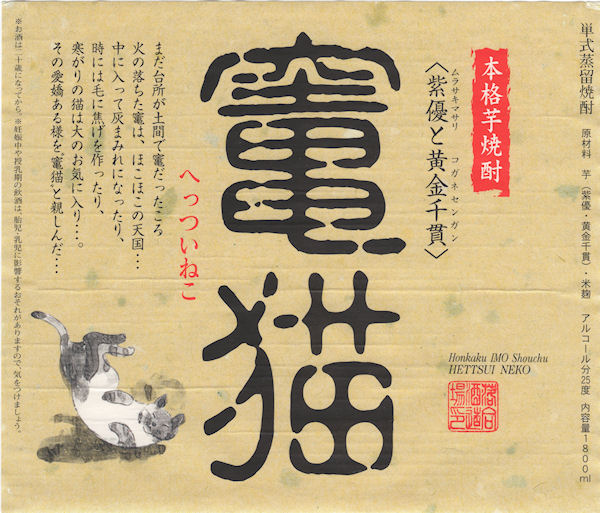 単式蒸留焼酎 原材料 芋(紫優・黄金千貫)・米麹 アルコール分25度 内容量1800ml
本格芋焼酎
ムラサキマサリ コガネセンガン
〈紫優と黄金千貫〉
竈猫
へっついねこ
まだ台所が土間で竈だったころ
火の落ちた竈は、ほこほこの天国…
中に入って灰まみれになったり、
時には毛に焦げを作ったり、
寒がりの猫は大のお気に入り…。
その愛嬌ある様を“竈猫”と親しんだ…
※お酒は二十歳になってから。※妊娠中や授乳期の飲酒は、胎児・乳児に影響するおそれがありますので、気をつけましょう。
Honkaku IMO Shouchu
HETTSUI NEKO
落合
酒造
場印